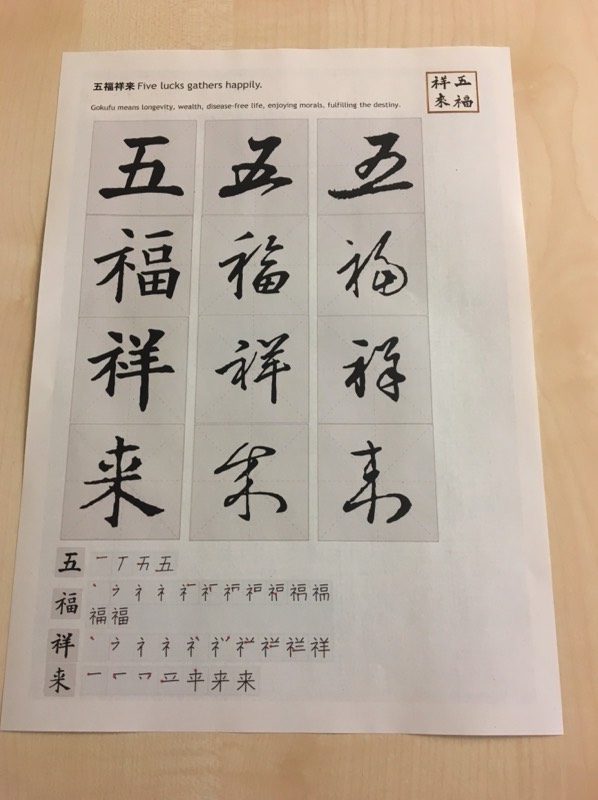 五福祥来 Five lucks gathers happily.
Gokufu means longevity, wealth, disease-free life, enjoying morals, fulfilling the destiny.
五福
祥来
五 五 五
福 福 福
祥 祥 祥
来 来 来
五 一 丁 五
福 丶 礻 福
福 福
祥 丶 礻 祥
来 一 来